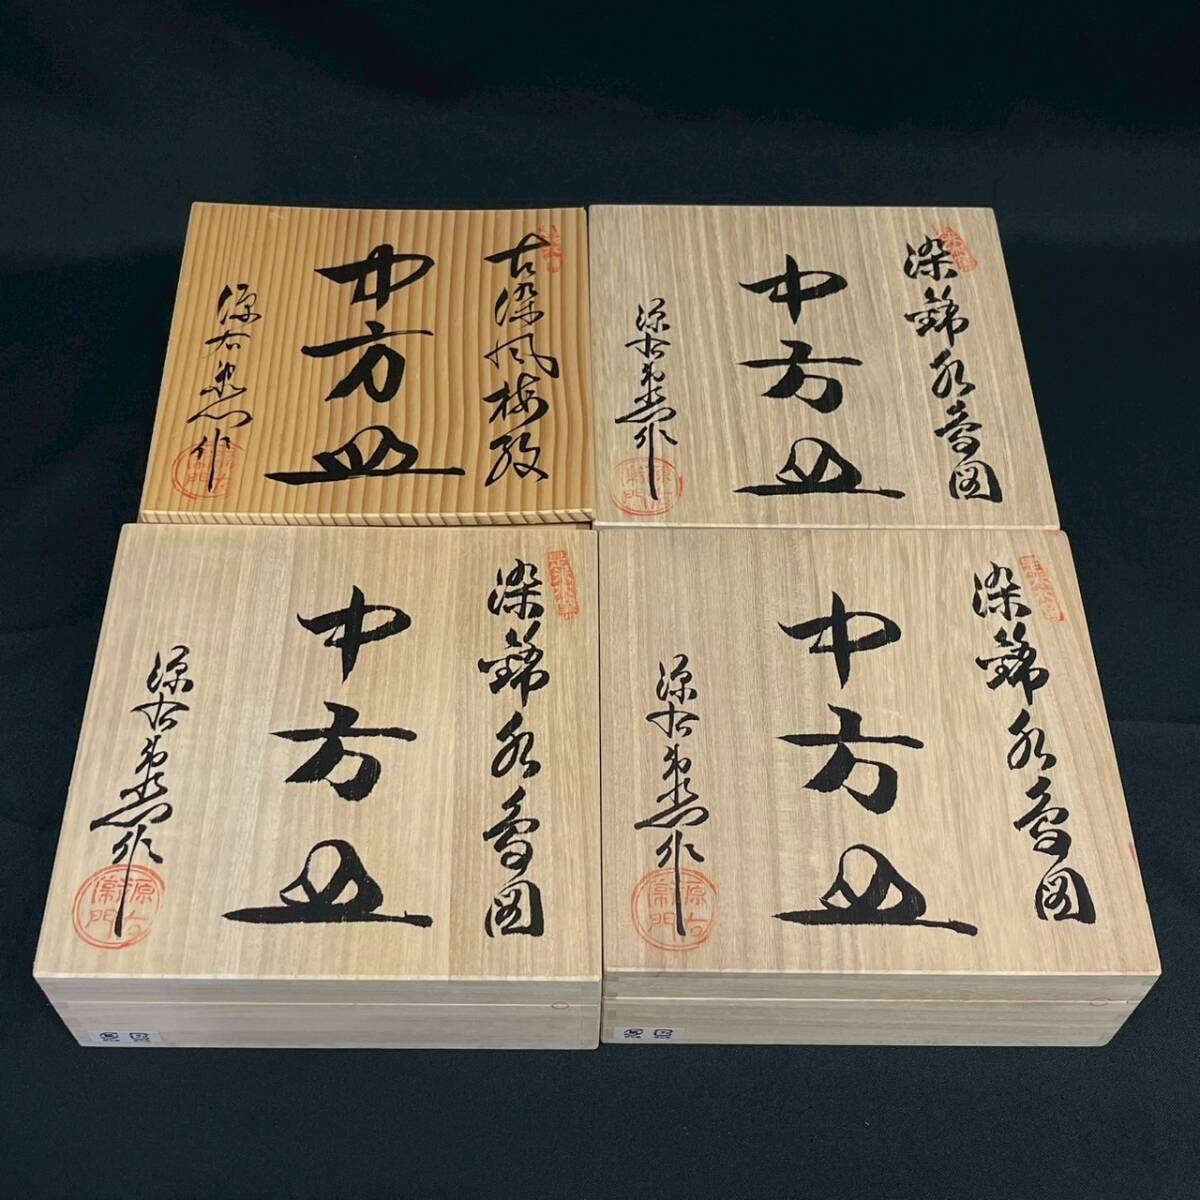 古染風梅絵
中方皿
源右衛門作
染錦水音図
中方皿
源右衛門作
源右衛門
染錦水音図
中方皿
源右衛門作
源右衛門
染錦水音図
中方皿
源右衛門作
源右衛門